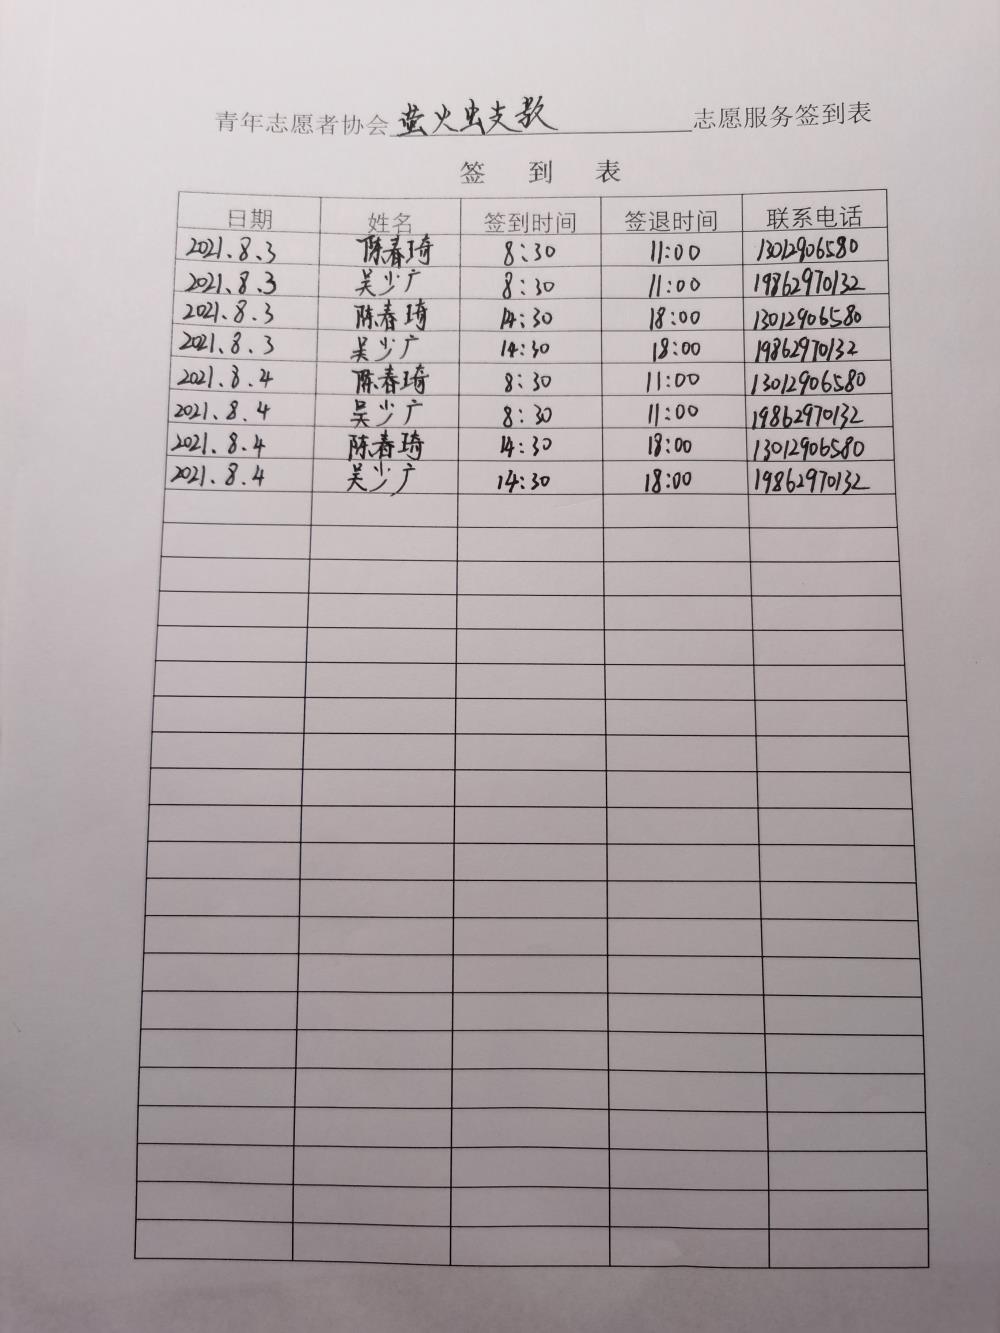 青年志愿者协会萤火虫支教志愿服务签到表
签 到 表
日期 姓名 签到时间 签退时间 联系电话
2021.8.3 陈春琦 8:30 11:00 13012906580
2021.8.3 吴少广 8:30 11:00 19862970132
2021.8.3 陈春琦 14:30 18:00 13012906580
2021.8.3 吴少广 14:30 18:00 19862970132
2021.8.4 陈春琦 8:30 11:00 13012906580
2021.8.4 吴少广 8:30 11:00 19862970132
2021.8.4 陈春琦 14:30 18:00 13012906580
2021.8.4 吴少广 14:30 18:00 19862970132